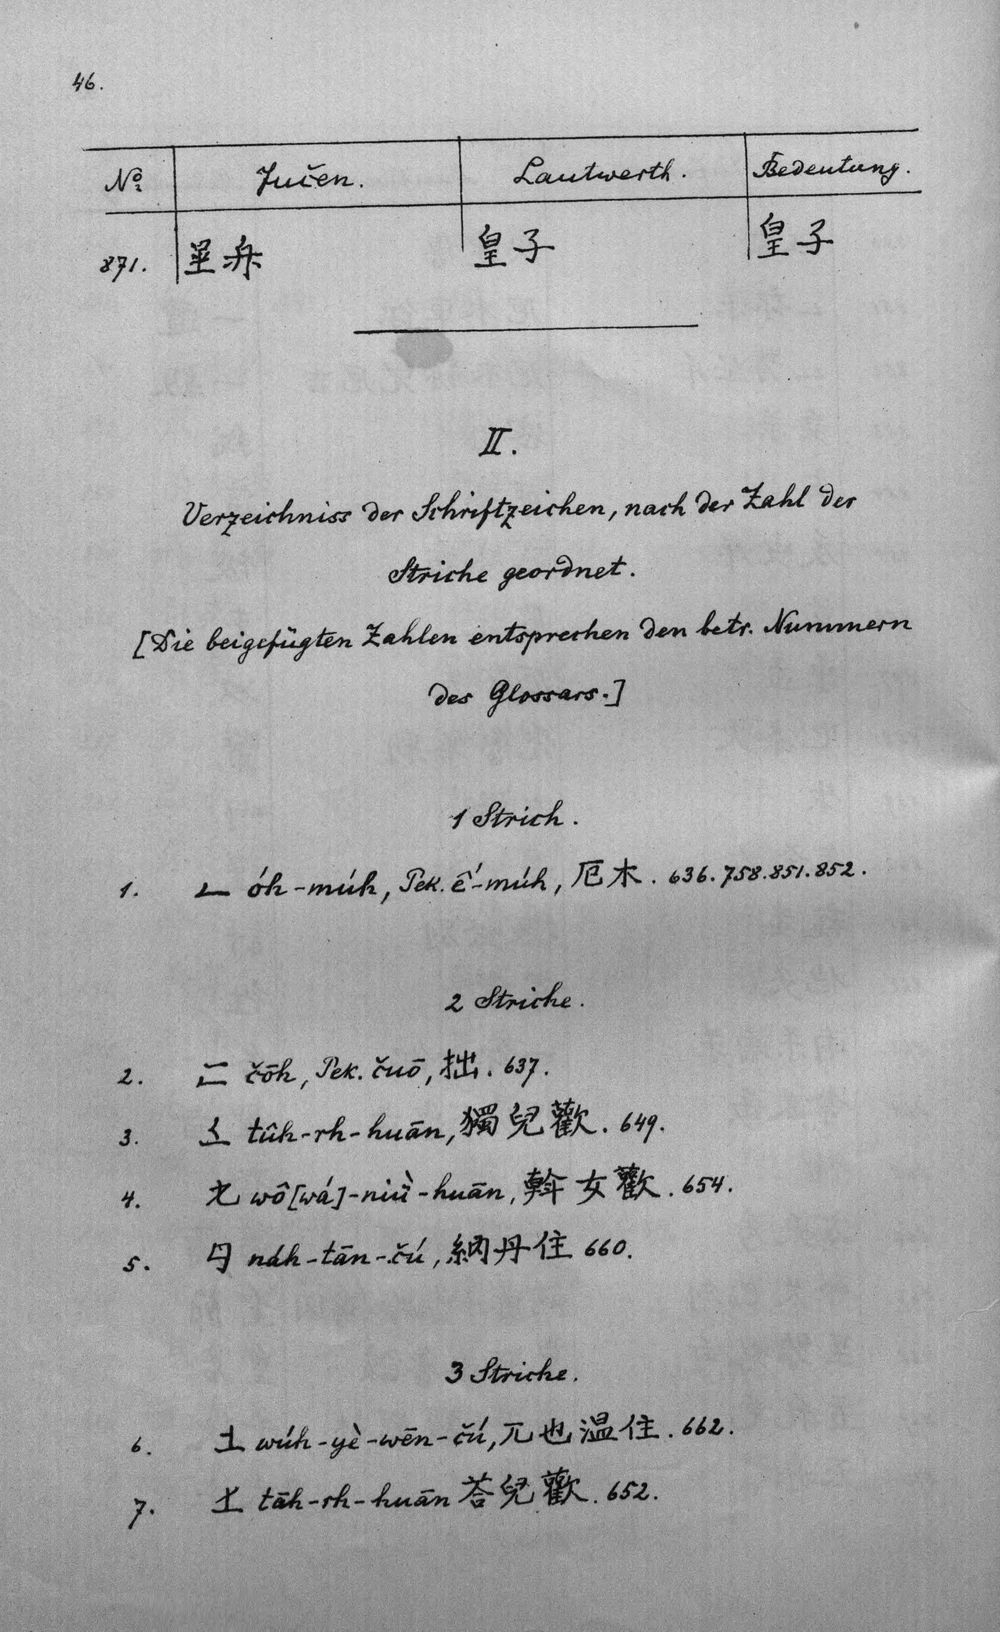 46.
No Jučen. Lautwerth. Bedeutung.
871. 皇子 皇子
II.
Verzeichniss der Schriftzeichen, nach der Zahl der
Striche geordnet.
[Die beigefügten Zahlen entsprechen den betr. Nummern
des Glossars.]
1 Strich.
1. óh-múh, Pek. ê´-múh, 厄木. 636. 758. 851. 852.
2 Striche.
2. čōh, Pek. čuō, 拙. 637.
3. tûh-rh-huān, 獨兒歡. 649.
4. wô[wá]-niǜ-huān, 斡女歡. 654.
5. náh-tān-čú, 納丹住 660.
3 Striche.
6. wúh-yè-wēn-čú, 兀也温住. 662.
7. tāh-rh-huān 荅兒歡. 652.